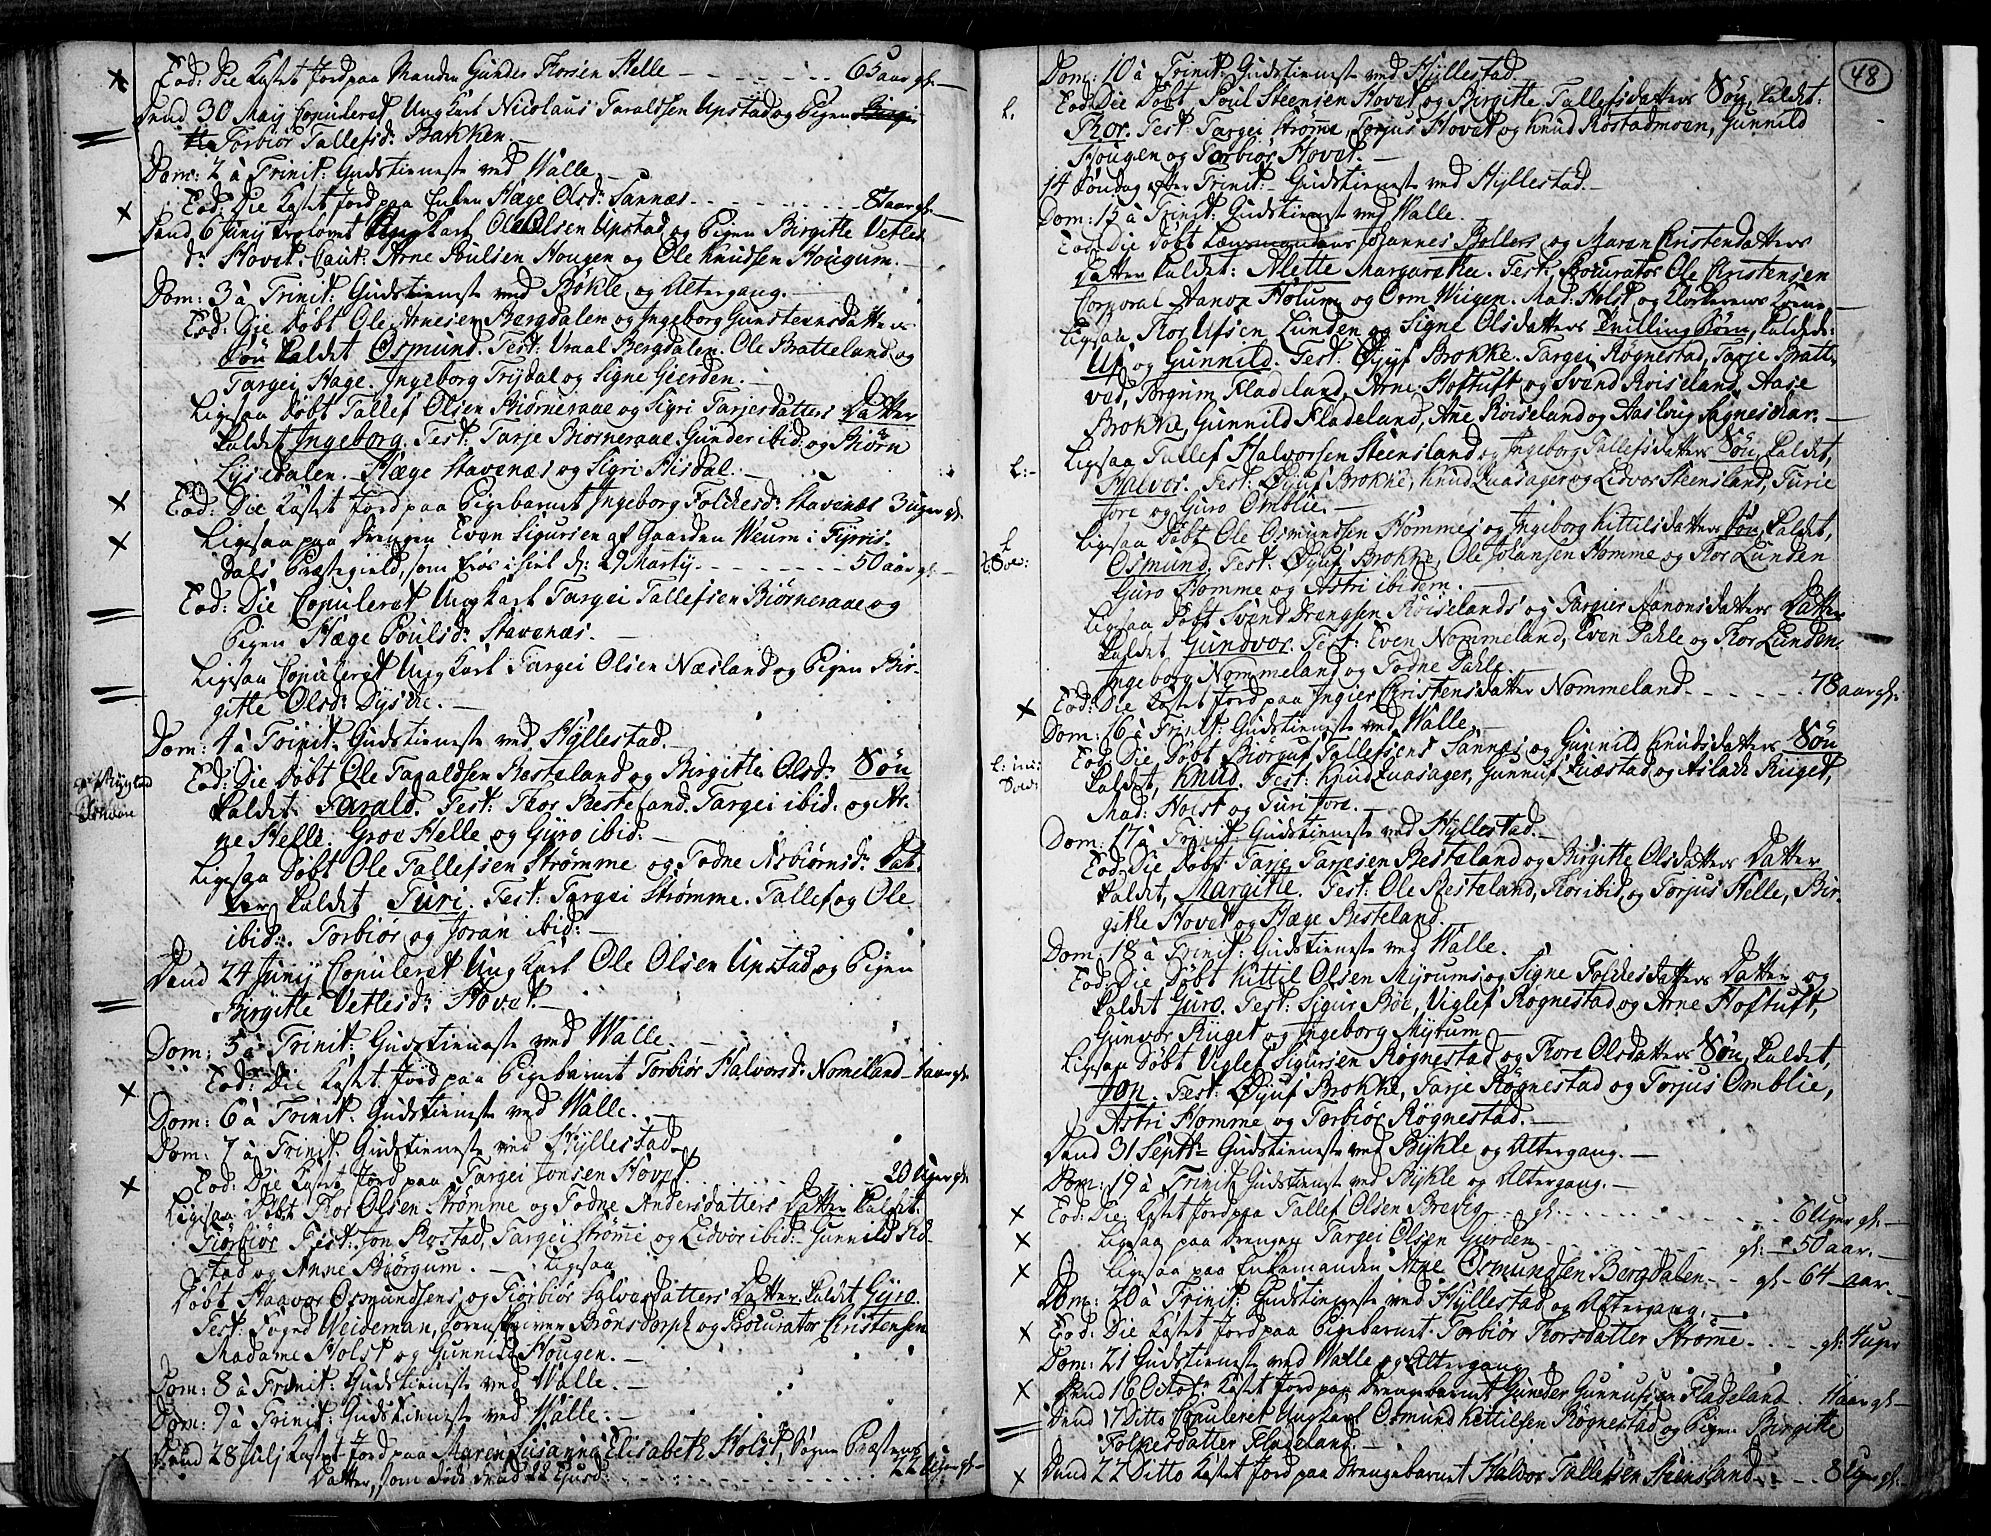 Eod: Die Kastet Jord paa Manden Gunder Thorsen Helle - 65 aar gl:
Dend 30 May Copuleret Ungkarl Nicolaus Taraldsen Upstad og Pigen
Torbiør Tallefsdr Bakken.
Dom: 2 à Trinit: Gudstieneste ved Walle
Eod: Die Kastet Jord paa Enken Hæge Olsdr Sannæs - 87 aar gl:
Dend 6 Junij Troelovet Ungkarl Ole Olsen Upstad og Pigen Birgitte Vetles
dr Hovet. Caut: Arne Poulsen Hougen og Ole Knudsen Hougum.
Dom: 3 à Trinit: Gudstieneste ved Bøkle og Altergang.
Eod: Die Døbt Ole Arnesen Bergdalen og Ingeborg Gunsteensdatters
Søn kaldet Osmund. Test: Vraal Bergdalen. Ole Bratteland og
Targei Hage. Ingeborg Trydal og Signe Geerden.
Ligesaa Døbt Tallef Olsen Biørneraae og Sigri Tarjesdatters Datter
kaldet Ingeborg. Test: Tarje Biørneraae Gunder ibid: og Biørn
Lysedalen. Hæge Stavenæs og Sigri Hisdal.
Eod: Die Kastet Jord paa Pigebarnet Ingeborg Folchesdr Stavenæs 3 uger gl.
Ligesaa paa Drengen Even Sigursen af Gaarden Weum i Fyris-
dals Præstegield, som frøs ihiel d: 29 Martij - 50 aar gl:
Eod: Die Copuleret Ungkarl Targei Tallefsen Biørneraae og
Pigen Hæge Poulsdr Stavenæs.
Ligesaa Copuleret Ungkarl Targei Olsen Næsland og Pigen Bir-
gitte Olsdr Dysche.
Dom: 4 à Trinit: Gudstieneste ved Hyllestad.
Eod: Die Døbt Ole Taraldsen Besteland og Birgitte Olsdr Søn
kaldet Tarald. Test: Thor Besteland. Targei ibid: og Ar-
ne Helle. Groe Helle og Gyro ibid:
Ligesaa Døbt Ole Tallefsen Strømme og Todne Asbiørnsdr Dat-
ter kaldet Turi. Test: Targei Strømme. Tallef og Ole
ibid:. Torbiør og Joran ibid:
Dend 24 Junij Copuleret Ungkarl Ole Olsen Upstad og Pigen
Birgitte Vetlesdr Hovet.
Dom: 5 à Trinit: Gudstieneste ved Walle.
Eod: Die Kastet Jord paa Pigebarnet Torbiør Halvorsdr Nomeland - 1 aar gl.
Dom: 6 à Trinit: Gudstieneste ved Walle.
Dom: 7 à Trinit: Gudstieneste ved Hyllestad
Eod: Die Kastet Jord paa Targei Jonsen Hovet. - 20 Uger gl.
Ligesaa Døbt Thor Olsen Strømme og Todne Andersdatters Datter kaldet
Tiørbiør Test: Jon Rostad, Targei Strømme og Lidvor ibid: Gunnild
stad og Anne Biørgum. Ligesaa
Døbt Haavor Osmundsens og Tiorbiør Halvorsdatters Datter kaldet Gyro.
Test: Foged Weideman, Sorenskriver Brønsdorph og Procurator Christensen
Madame Holst og Gunnild Hougen.
Dom: 8 à Trinit: Gudstieneste ved Walle.
Dom: 9 à Trinit: Gudstieneste ved Walle.
Dend 28 Julj Kastet Jord paa Maren Susanna Elisabeth Holst, Sogne Præstens
Datter, som døde dend 22 - 22 Uger gl.
48
Dom: 10 à Trinit: Gudstieneste ved Hyllestad
Eod: Die Døbt, Poul Steensen Hovet og Birgitte Tallefsdatters Søn, kaldet:
Thor. Test: Targei Strømme, Torjus Hovet og Knud Rostadmoen, Gunnild
Hougen og Torbiør Hovet.
14 Søndag efter Trinit: Gudstieneste ved Hyllestad.
Dom: 15 à Trinit: Gudstieneste ved Walle.
Eod: Die Døbt Lænsmandens Johannes Bollers og Maren Cristensdatters
Datter kaldet: Alette Margaretha. Test: Procurator Ole Christensen
Corporal Aanon Holum og Orm Wiigen. Mad: Holst og Klokkerens Kone
Ligesaa Thor Ufsen Lunden og Signe Olsdatters Tvillingbørn, kaldede:
Uf og Gunnild. Test: Øyuf Brokke. Targei Røgnestad, Tarje Bratt-
vad, Torgrim Fladeland, Arne Hoftuft og Svend Roiseland, Aase
Brokke, Gunnild Fladeland, Ane Roiseland og Aasloug
Ligesaa Tallef Halvorsen Steensland og Ingeborg Tallefsdatters Søn, kaldet,
Halvor. Test: Øyuf Brokke, Knud Quasager og Lidvor Steensland, Turie
Jore og Guro Omblie.
Ligesaa Døbt Ole Osmundsen Hommes og Ingeborg Kittilsdatters Søn, kaldet,
Osmund. Test: Øyuf Brokke, Ole Johansen Homme og Thor Lunden
Guro Homme og Astri ibidem.
Ligesaa Døbt Svend Drengsen Roiselands og Targier Aanonsdatters Datter
kaldet Gundvor. Test: Even Nommeland, Even Dahle og Thor Lunden.
Ingeborg Nommeland og Todne Dahle.
Eod: Die Kastet Jord paa Ingier Christensdatter Nommeland - 48 aar gl.
Dom: 16 à Trinit: Gudstieneste ved Walle.
Eod: Die Døbt Biørguf Tallefsens Sannæs og Gunnild Knudsdatters Søn
kaldet, Knud. Test: Knud Quasager, Gunnuf Quæstad og Aslack Ryget,
Mad: Holst og Turi Jore.
Dom: 17 à Trinit: Gudstieneste ved Hyllestad.
Eod: Die Døbt Tarje Tarjesen Besteland og Birgitte Olsdatters Datter
kaldet, Margitte. Test: Ole Besteland, Thor ibid, og Torjus Helle, Bir-
gitte Hovet og Hæge Besteland.
Dom: 18 à Trinit: Gudstieneste ved Walle.
Eod: Die Døbt Kittil Olsen Myrums og Signe Folchesdatters Datter og
kaldet Guro. Test: Sigur Bøe, Viglef Røgnestad og Arne Hoftuft,
Gunvor Ryget og Ingeborg Myrum
Ligesaa Døbt Viglef Sigursen Røgnestad og Thore Olsdatters Søn, kaldet,
Jon. Test: Øyuf Brokke, Tarje Røgnestad og Torjus Omblie,
Astri Homme og Torbiør Røgnestad.
Dend 31 Septr Gudstieneste ved Bykle og Altergang.
Dom: 19 à Trinit: Gudstieneste ved Bykle og Altergang.
Eod: Die: Kastet Jord paa Tallef Olsen Bredvig gl: - 6 Uger gl:
Ligesaa paa Drengen Targei Olsen Gierden gl: - 50 aar.
Ligesaa paa Enkemanden Arne Osmundsen Bergdalen gl - 64 aar.
Dom: 20 à Trinit: Gudstieneste ved Hyllestad og Altergang.
Eod: Die Kastet Jord paa Pigebarnet Torbiør Thorsdatter Strømme. gl: 4 uger
Dom: 21 Gudstieneste ved Walle og Altergang
Dend 16 Octobr Kastet Jord paa Drengebarnet Gunder Gunnufsen Fladeland 11 aar gl
Dend 17 Ditto Copuleret Ungkarl Osmund Kittilsen Røgnestad og Pigen Birgitte
Folkesdatter Fladeland.
Dend 22 Ditto Kastet Jord paa Drengebarnet Halvor Tallefsen Steensland - 8 Uger gl.